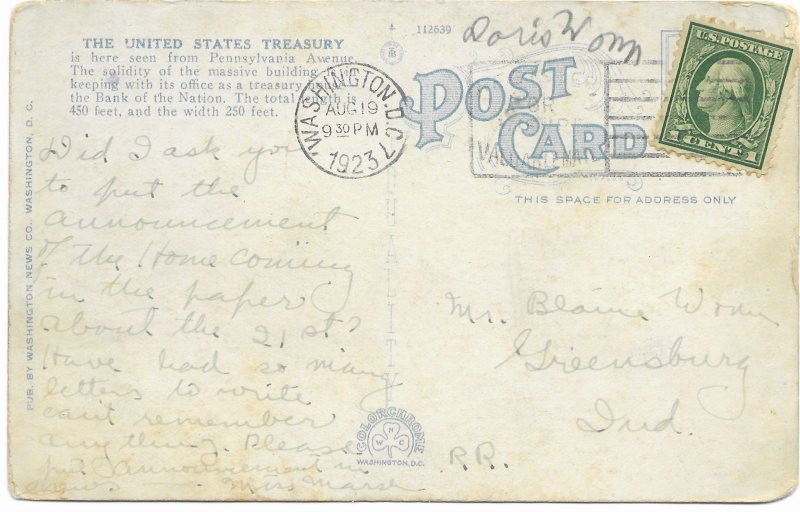 THE UNITED STATES TREASURY
is here seen from Pennsylvania Avenue.
The solidity of the massive building
keeping with its office as a treasury
the Bank of the Nation. The total length is
450 feet, and the width 250 feet.
112639
Doris Wonn
WASHINGTON, D.C. 7
AUG 19
9 30 PM
1923
POST
CARD
U.S. POSTAGE
1 CENT 1
THIS SPACE FOR ADDRESS ONLY
Did I ask you
to put the
announcement
of the Home coming
in the paper
about the 21st?
Have had so many
letters to write
can't remember
anything. Please
put announcement in
Miss Marsh
Mr. Blaine Wonn
Greensburg
Ind.
R.R.
QUALITY
COLORCHROME
W N C
WASHINGTON, D.C.
PUB. BY WASHINGTON NEWS CO., WASHINGTON, D. C.